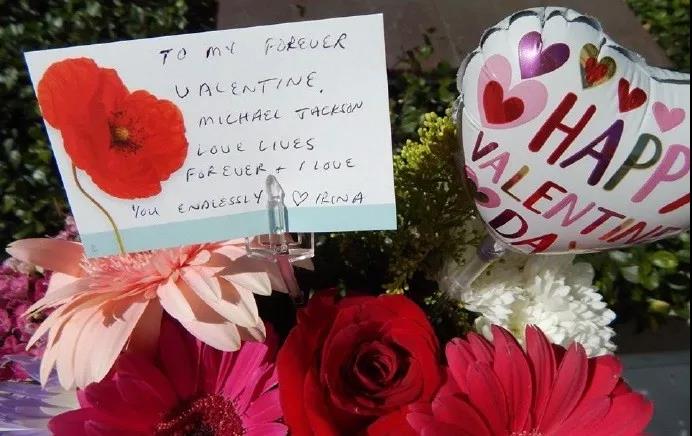 TO MY FOREVER
VALENTINE,
MICHAEL JACKSON
LOVE LIVES
FOREVER + I LOVE
YOU ENDLESSLY ♡ IRINA
HAPPY
VALENTINE
DAY